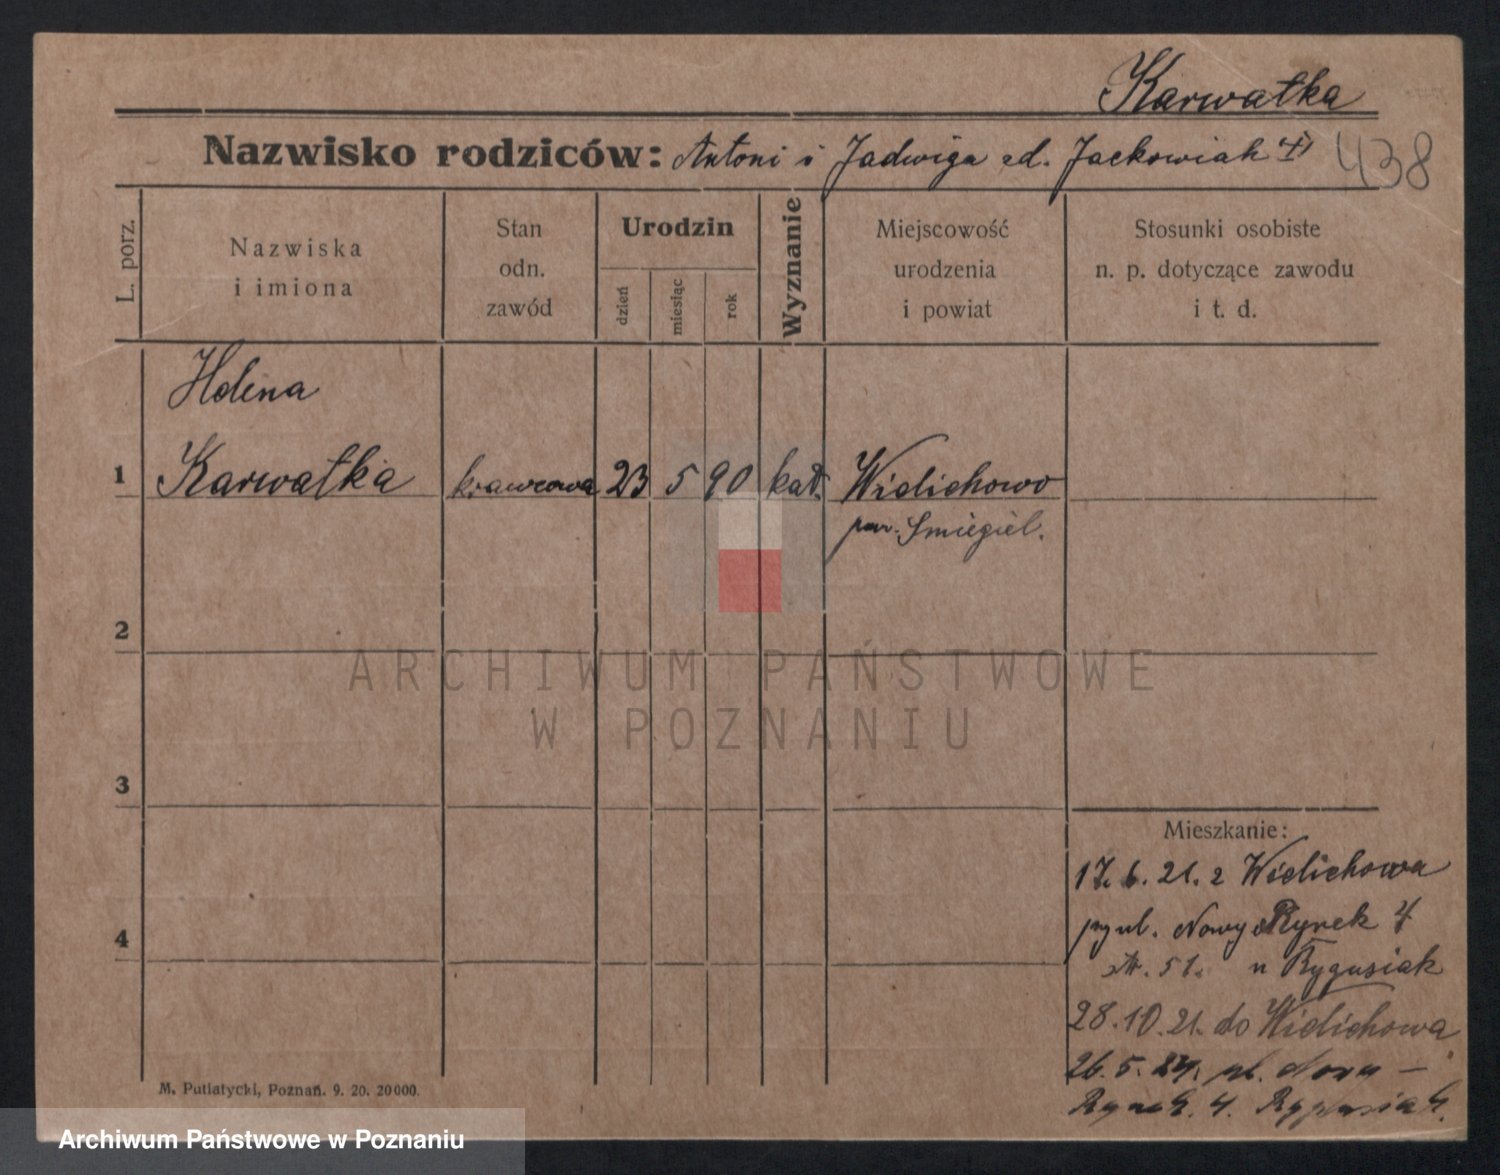 Karwatka
Nazwisko rodziców: Antoni i Jadwiga zd. Jackowiak
438
L. porz.
Nazwiska
i imiona
Stan
odn.
zawód
Urodzin
dzień
miesiąc
rok
Wyznanie
Miejscowość
urodzenia
i powiat
Stosunki osobiste
n. p. dotyczące zawodu
i t. d.
Helena
1 Karwatka krawcowa 23 5 90 kat. Wielichowo
pow. Śmigiel.
2
ARCHIWUM PAŃSTWOWE
W POZNANIU
3
Mieszkanie:
17. 6. 21. z Wielichowa
4
przy ul. Nowy Rynek 4
51. u Rygusiak
28.10.21. do Wielichowa
26. 5. ul. Nowy
Rynek. 4.
M. Putiatycki, Poznań. 9. 20. 20000.
Archiwum Państwowe w Poznaniu